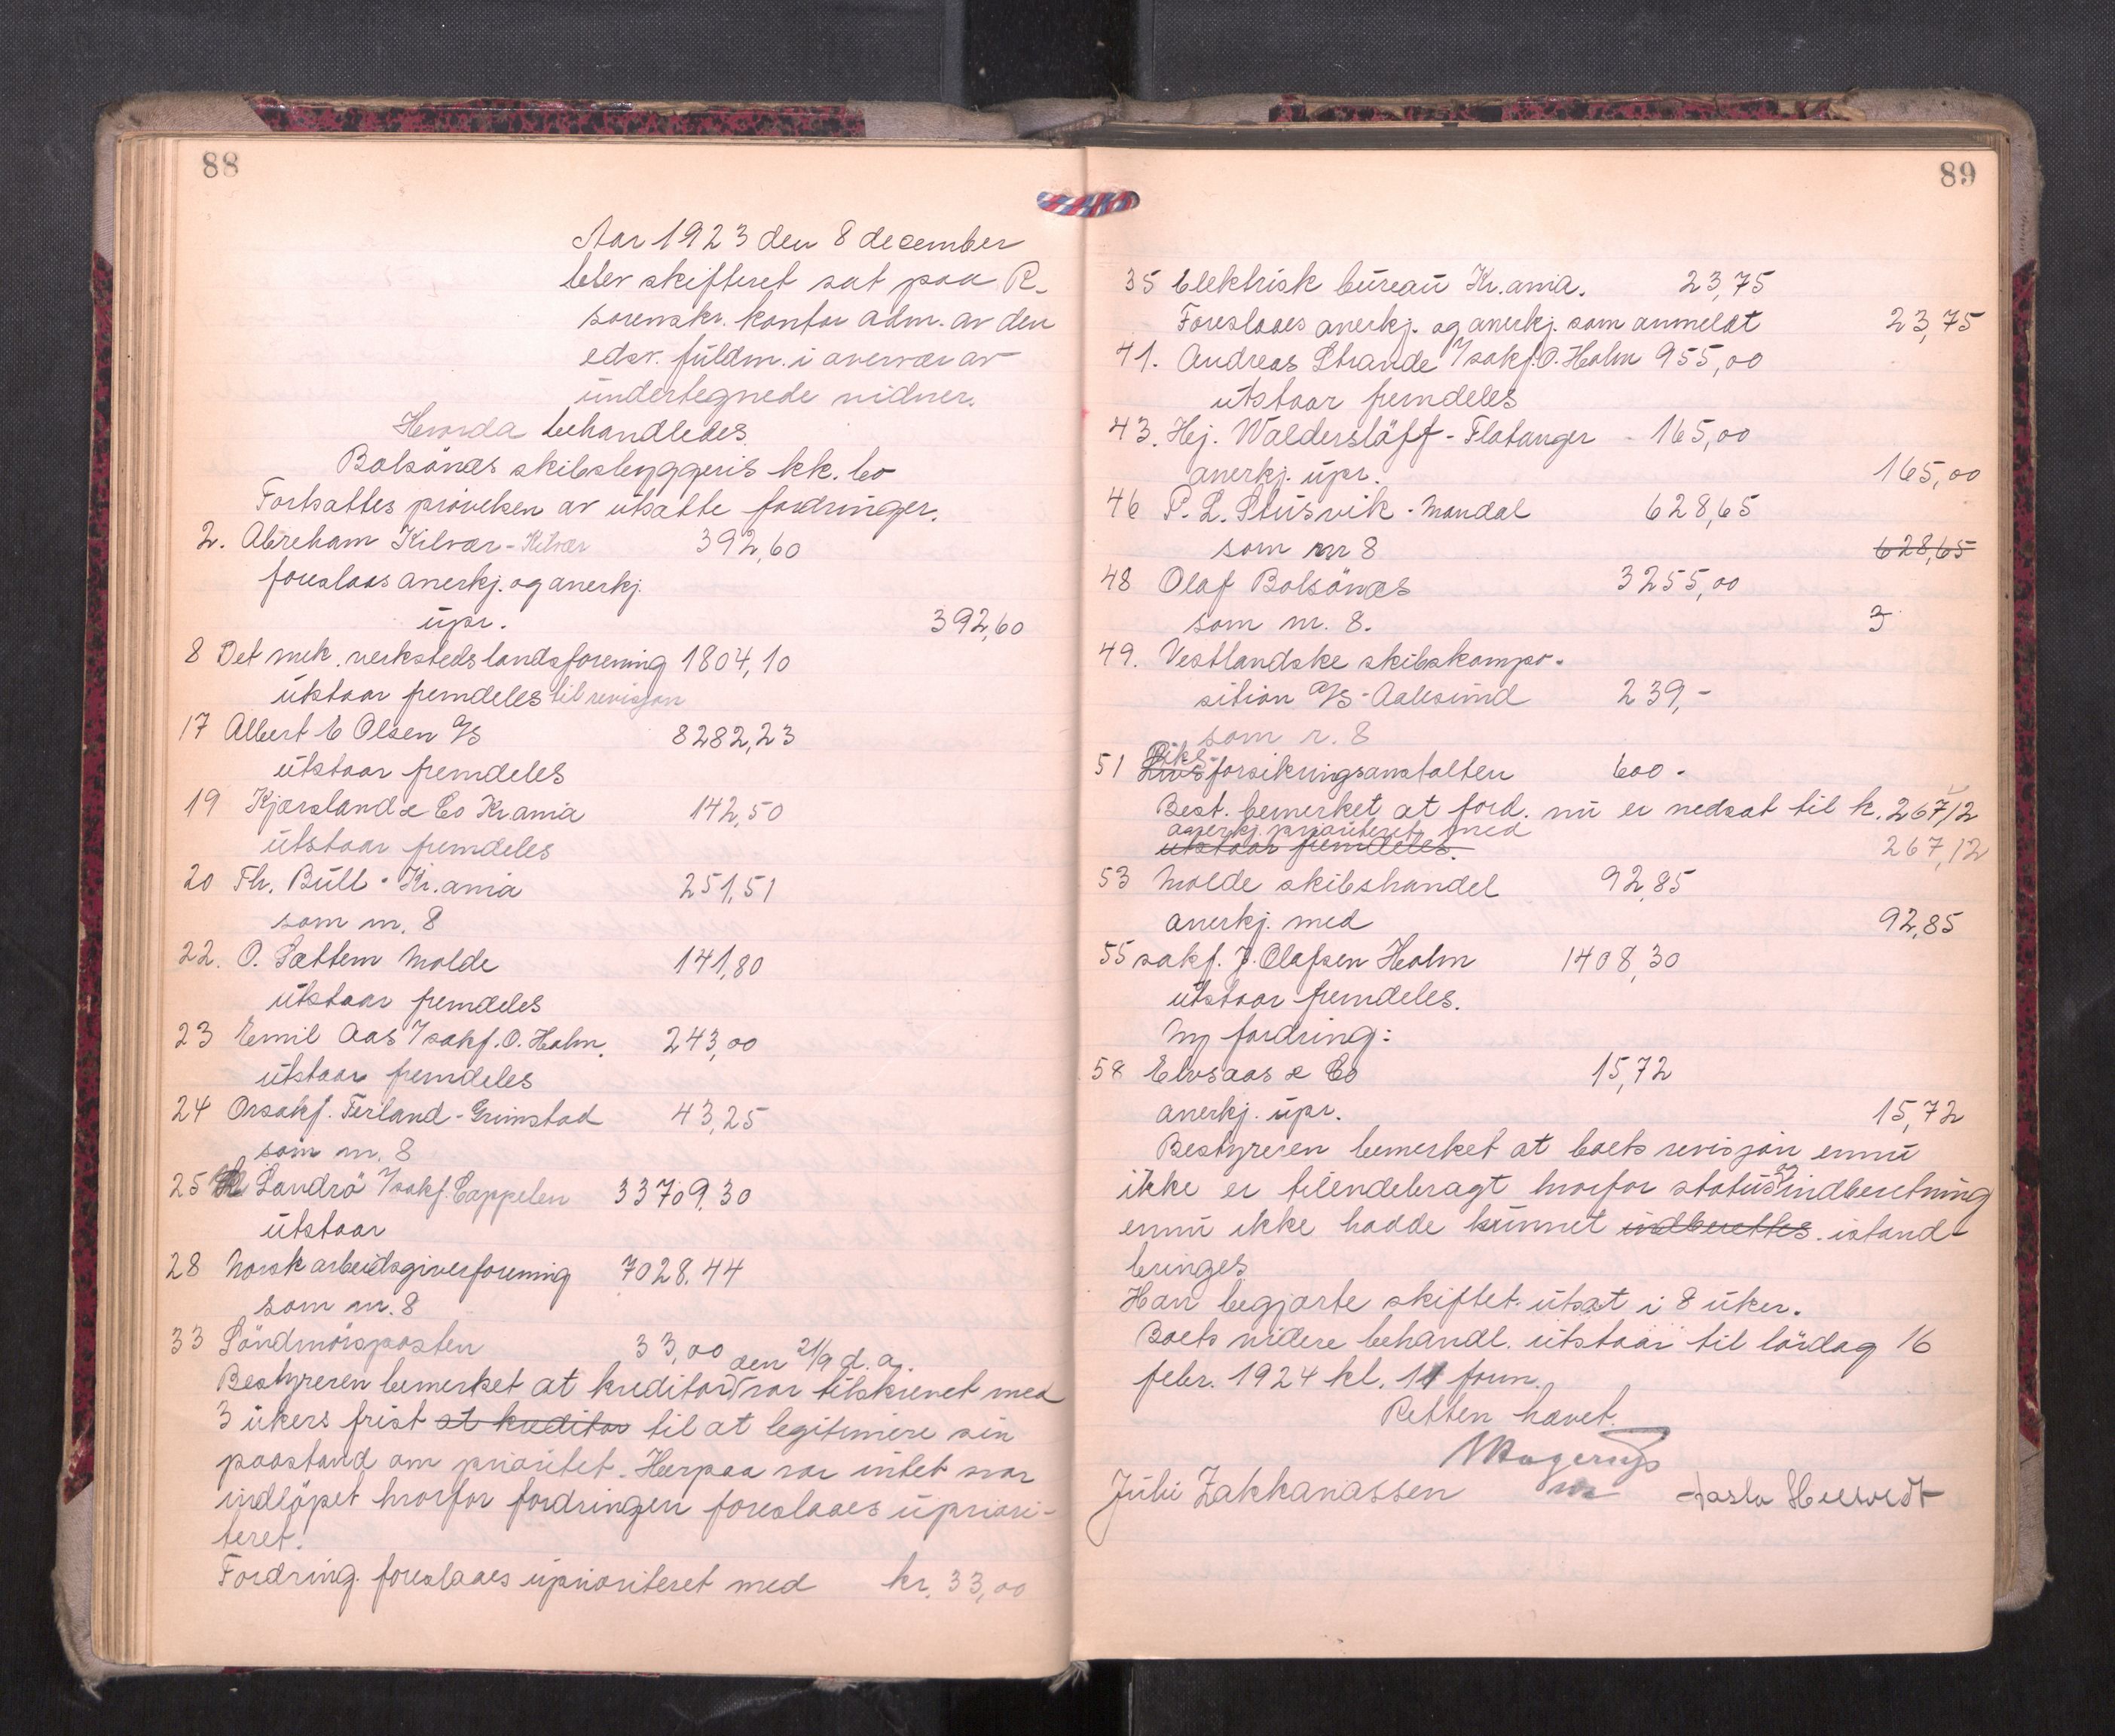 88
Aar 1923 den 8 december
blev skifteret sat paa R.
sorenskr. kontor adm. av den
edsv. fuldm. i overvær av
undertegnede vidner.
Hvorda behandledes.
Bolsönes skibsbyggeris kk. bo
Fortsattes prövelsen av utsatte fordringer.
2. Abreham Kilvær - Kilvær 392,60
foreslaas anerkj. og anerkj.
upr. 392,60
8 Det mek. verksteds landsforening 1804,10
utstaar fremdeles til revisjon
17 Albert E Olsen A/S 8282,23
utstaar fremdeles
19 Kjærsland & Co Kr.ania 142,50
utstaar fremdeles
20 Th. Bull - Kr.ania 251,51
som nr. 8
22. O. Sættem Molde 141,80
utstaar fremdeles
23 Emil Aas v/sakf. O. Holm. 243,00
utstaar fremdeles
24 Orsakf. Terland - Grimstad 43,25
som nr. 8
25 Landrö v/sakf. Cappelen 33709.30
utstaar
28 Norsk arbeidsgiverforening 7028.44
som nr. 8
33 Söndmörsposten 33,00
den 21/9 d.a.
Bestyreren bemerket at kreditor var tilskrevet med
3 ukers frist at kreditor til at legitimere sin
paastand om prioritet. Herpaa var intet svar
indlöpet hvorfor fordringen foreslaaes upriori-
teret.
Fordring. foreslaaes uprioriteret med kr. 33,00
89
35 Elektrisk bureau Kr.ania. 23,75
Foreslaaes anerkj. og anerkj. som anmeldt 23,75
41. Andreas Strande v/sakf. O. Holm 955,00
utstaar fremdeles
43. Hj. Walderslöff - Flatanger - 165,00
anerkj. upr. 165,00
46 P. L. Stusvik - Mandal 628,65
som nr 8 628,65
48 Olaf Bolsönes 3255,00
som nr. 8. 3
49. Vestlandske skibskompo-
sition A/S - Aalesund 239,-
som n. 8
51 Riksforsikringsanstalten 600 -
Best. bemerket at ford. nu er nedsat til k. 267,12
anerkj. prioriteret med
utstaar fremdeles. 267,12
53 Molde skibshandel 92,85
anerkj. med 92,85
55 sakf. J. Olafsen Holm 1408,30
utstaar fremdeles.
Ny fordring:
58 Elvsaas & Co 15,72
anerkj. upr. 15,72
Bestyreren bemerket at boets revisjon ennu
ikke er tilendebragt hvorfor status og indberetning
ennu ikke hadde kunnet indberettes istand-
bringes
Han begjærte skiftet utsat i 8 uker.
Boets videre behandl. utstaar til lördag 16
febr. 1924 kl. 11 form.
Retten hævet.
Julie Zakkariassen